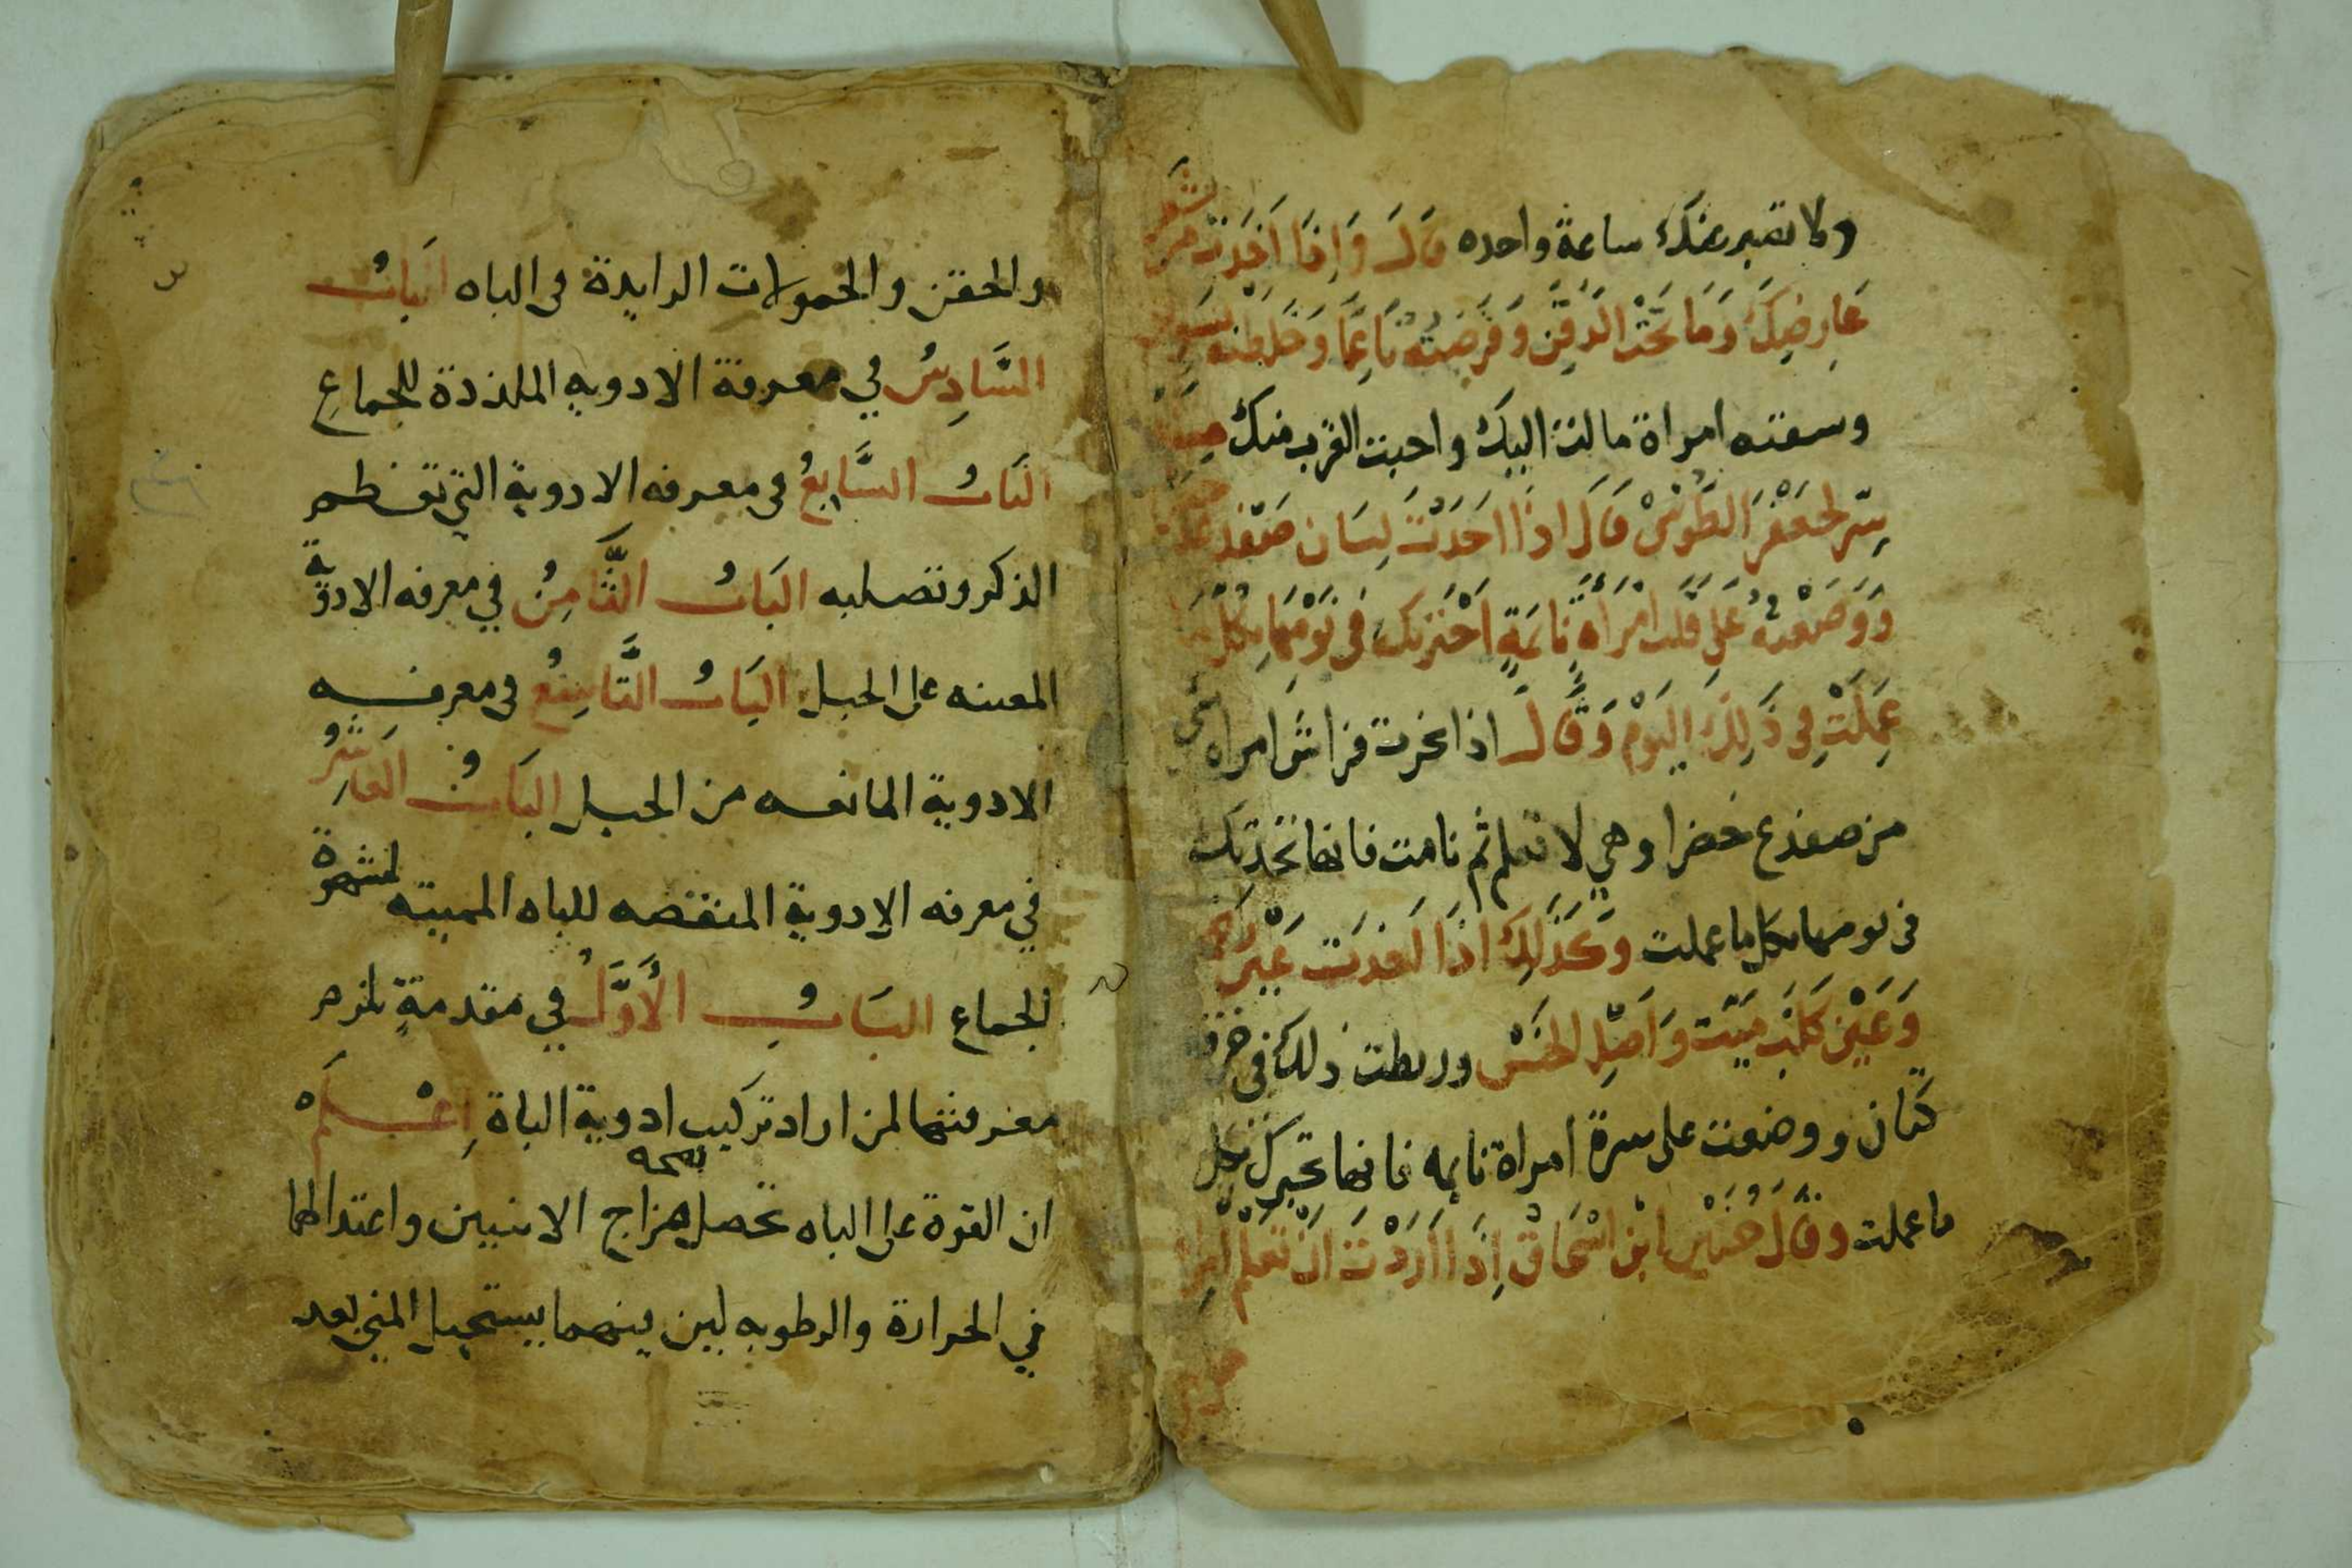 ولا تصبر عنك ساعة واحده قَالَ وَاِذَا اَخَذتَ من شعر
عَارِضِكَ وَمَا تَحْتَ الذَقَنِ وَقَرَضتَهُ نَاعِمًا وَخَلَطتَه
وسقته امراة مالت اليك واحبت القرب منك
سِر لجَعْفَر الطُوسْى قَالَ اذَا اخَذتَ لِسَان ضفدع
وَوَضَعْتَهُ عَلى قَلب امْرَاَةٍ نَايمَةٍ اَخْبَرتكَ فى نَوْمهَا بكل
عَمِلَتْ فِى ذَلِكَ اليَوْم وَقَالَ اذا بخرت فراش امراه
من ضفدع خضرا وهي لا تعلم ثم نامت فانها تخبرك
فى نومها بكل ما عملت وَكَذَلِكَ اذَا اخذت عَيْن
وَعَيْن كَلب مَيّت وَاَصْل الخَسّ وربطت ذلك فى خرقة
كتان ووضعت على سرة امراة نايمه فانها تخبرك بكل
ما عملت وقَالَ حُنَيْن ابن اسْحَاق اِذَا اَرَدْتَ اَنْ تَعْلم
والحقن والحمولات الزايدة فى الباه البَابُ
السَّادِسُ في معرفة الادويه الملذذة للجماع
البَابُ السَّابِعُ فى معرفه الادوية التي تعظم
الذكر وتصلبه البَابُ الثَّامِنُ في معرفه الادوية
المعينه على الحبل البَابُ التَّاسِعُ فى معرفه
الادوية المانعه من الحبل البَابُ العَاشِرُ
في معرفه الادوية المنقصه للباه المميته لشهوة
الجماع البَابُ الأَوَّلُ في مقدمةٍ يلزم
معرفتها لمن اراد تركيب ادوية الباة اِعْلَمْ
ان القوة على الباه تحصل بصحه مزاج الانثيين واعتدالهما
في الحرارة والرطوبه لين بينهما يستحيل المني بعد